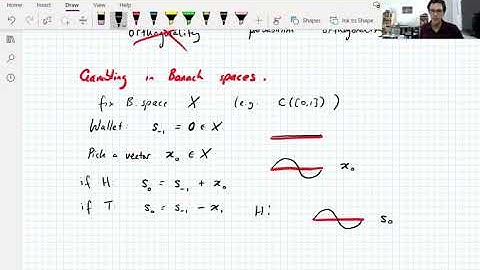 File Home Insert Draw View Help
Shapes Ask to Shape
orthogonality orthogonality
Gambling in Banach spaces.
fix B. space X (e.g. C([0,1]))
Wallet: s₋₁ = 0 ∈ X
Pick a vector x₀ ∈ X x₀
if H: s₀ = s₋₁ + x₀
if T s₀ = s₋₁ - x₁ H: s₀